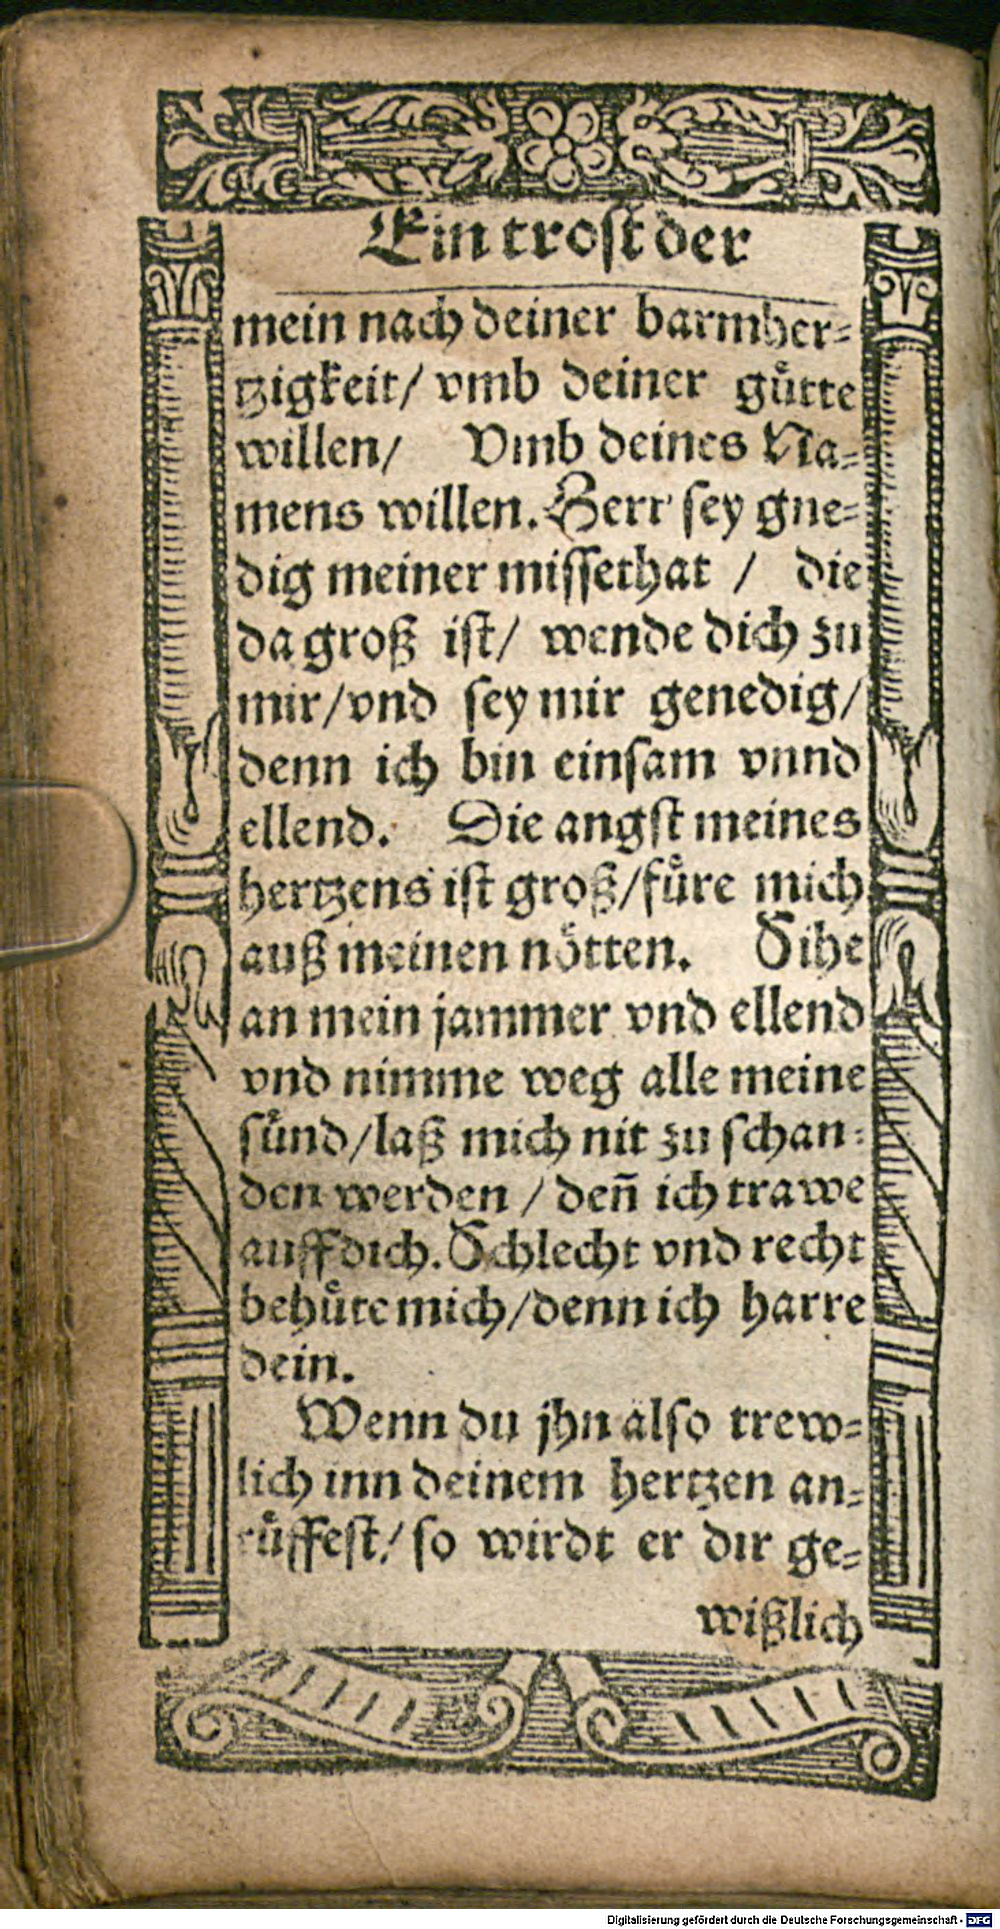 Ein trost der
mein nach deiner barmher⸗
tzigkeit/ vmb deiner guͤtte
willen/ Vmb deines Na⸗
mens willen. Herr sey gne⸗
dig meiner missethat / die
da groß ist/ wende dich zu
mir/vnd sey mir genedig/
denn ich bin einsam vnnd
ellend. Die angst meines
hertzens ist groß/fuͤre mich
auß meinen noͤtten. Sihe
an mein jammer vnd ellend
vnd nimme weg alle meine
suͤnd/laß mich nit zu schan⸗
den werden / deñ ich trawe
auff dich. Schlecht vnd recht
behuͤte mich/denn ich harre
dein.
Wenn du jhn also trew⸗
lich inn deinem hertzen an⸗
ruͤffest/ so wirdt er dir ge⸗
wißlich
Digitalisierung gefördert durch die Deutsche Forschungsgemeinschaft - DFG